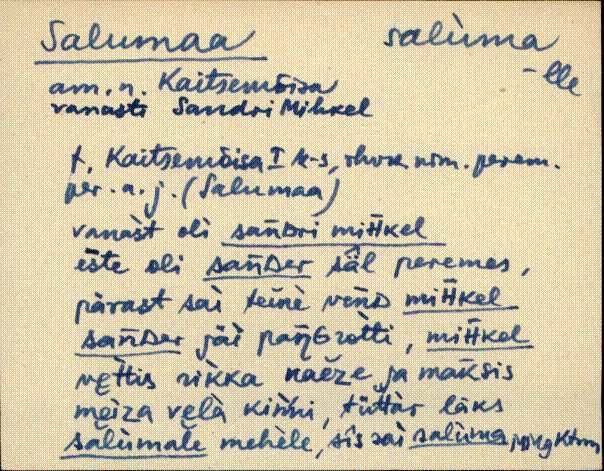 Salumaa salùma
-lle
am. n. Kaitsemõisa
vanasti Sandri Mihkel
t. Kaitsemõisa I k-s, nim. perem.
per. a. j. (Salumaa)
vanàst oli san̄Dri miH̄kel
ēšte oli san̄Der säl peremes,
pärast sai teine vēnD miH̄kel
san̄Der jäi paŋ̄Grotti, miH̄kel
vettis rikka naeze, ja maksis
meiza vela kinni, tüttàr läks
salùmale mehèle, sīs sai salùma